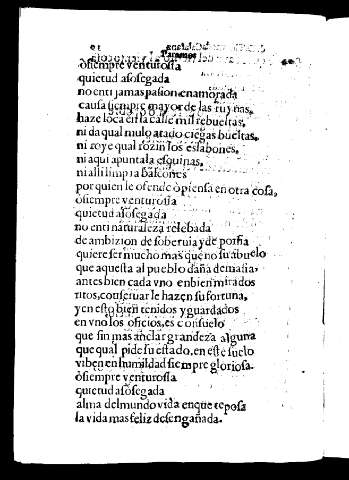 Paramos
o siempre venturosta
quietud asosegada
no enti jamas pasion enamorada
causa siempre mayor de las ruynas,
haze loca esta calle mil rebueltas,
ni da qual mulo atado ciegas bueltas,
ni roye qual rozin los eslabones,
ni aqui apuntala esquinas,
ni alli limpia balcones
por quien le ofende ò piensa en otra cosa,
ò siempre venturosta
quietud asosegada
no enti naturaleza relebada
de ambizion de soberuia y de porfia
quiere ser mucho mas que no su abuelo
que aquesta al pueblo daña demasia,
antes bien cada vno en bien mirados
ritos, conseruar le hazen su fortuna,
y en esto bien tenidos y guardados
en vno los oficios, es consuelo
que sin mas anelar grandeza alguna
que qual pide su estado, en este suelo
viben en humildad siempre gloriosa.
ò siempre venturosta
quietud asosegada
alma del mundo vida en que reposa
la vida mas feliz desengañada.